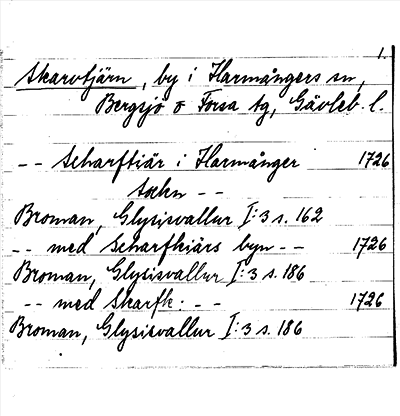 1.
Skarvtjärn, by i Harmångers sn,
Bergsjö o Forsa tg, Gävleb. l.
-- Scharftiär i Harmånger 1726
sokn --
Broman, Glysisvallur I:3 s. 162
-- med Scharfkiärs byn -- 1726
Broman, Glysisvallur I:3 s. 186
-- med Skarfk: -- 1726
Broman, Glysisvallur I:3 s. 186